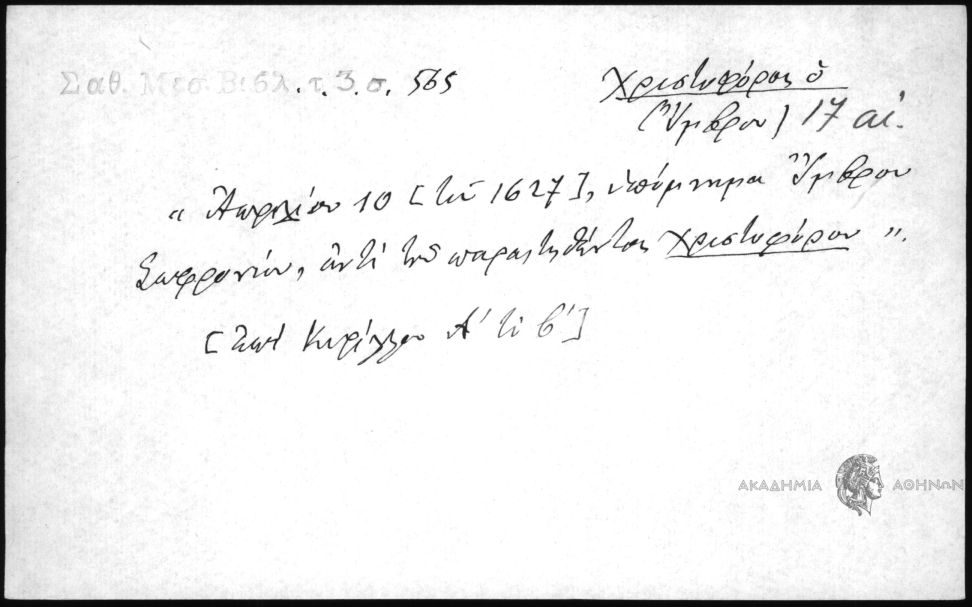 Σαθ. Μεσ. Βιβλ. τ. 3 σ. 565
Χριστοφόρος ὁ
(Ἴμβρου) 17 αἰ.
" Ἀπριλίου 10 [τοῦ 1627], ὑπόμνημα Ἴμβρου
Σωφρονίου, ἀντὶ τοῦ παραιτηθέντος Χριστοφόρου ".
[ἐπὶ Κυρίλλου Α' τὸ β']
ΑΚΑΔΗΜΙΑ ΑΘΗΝΩΝ